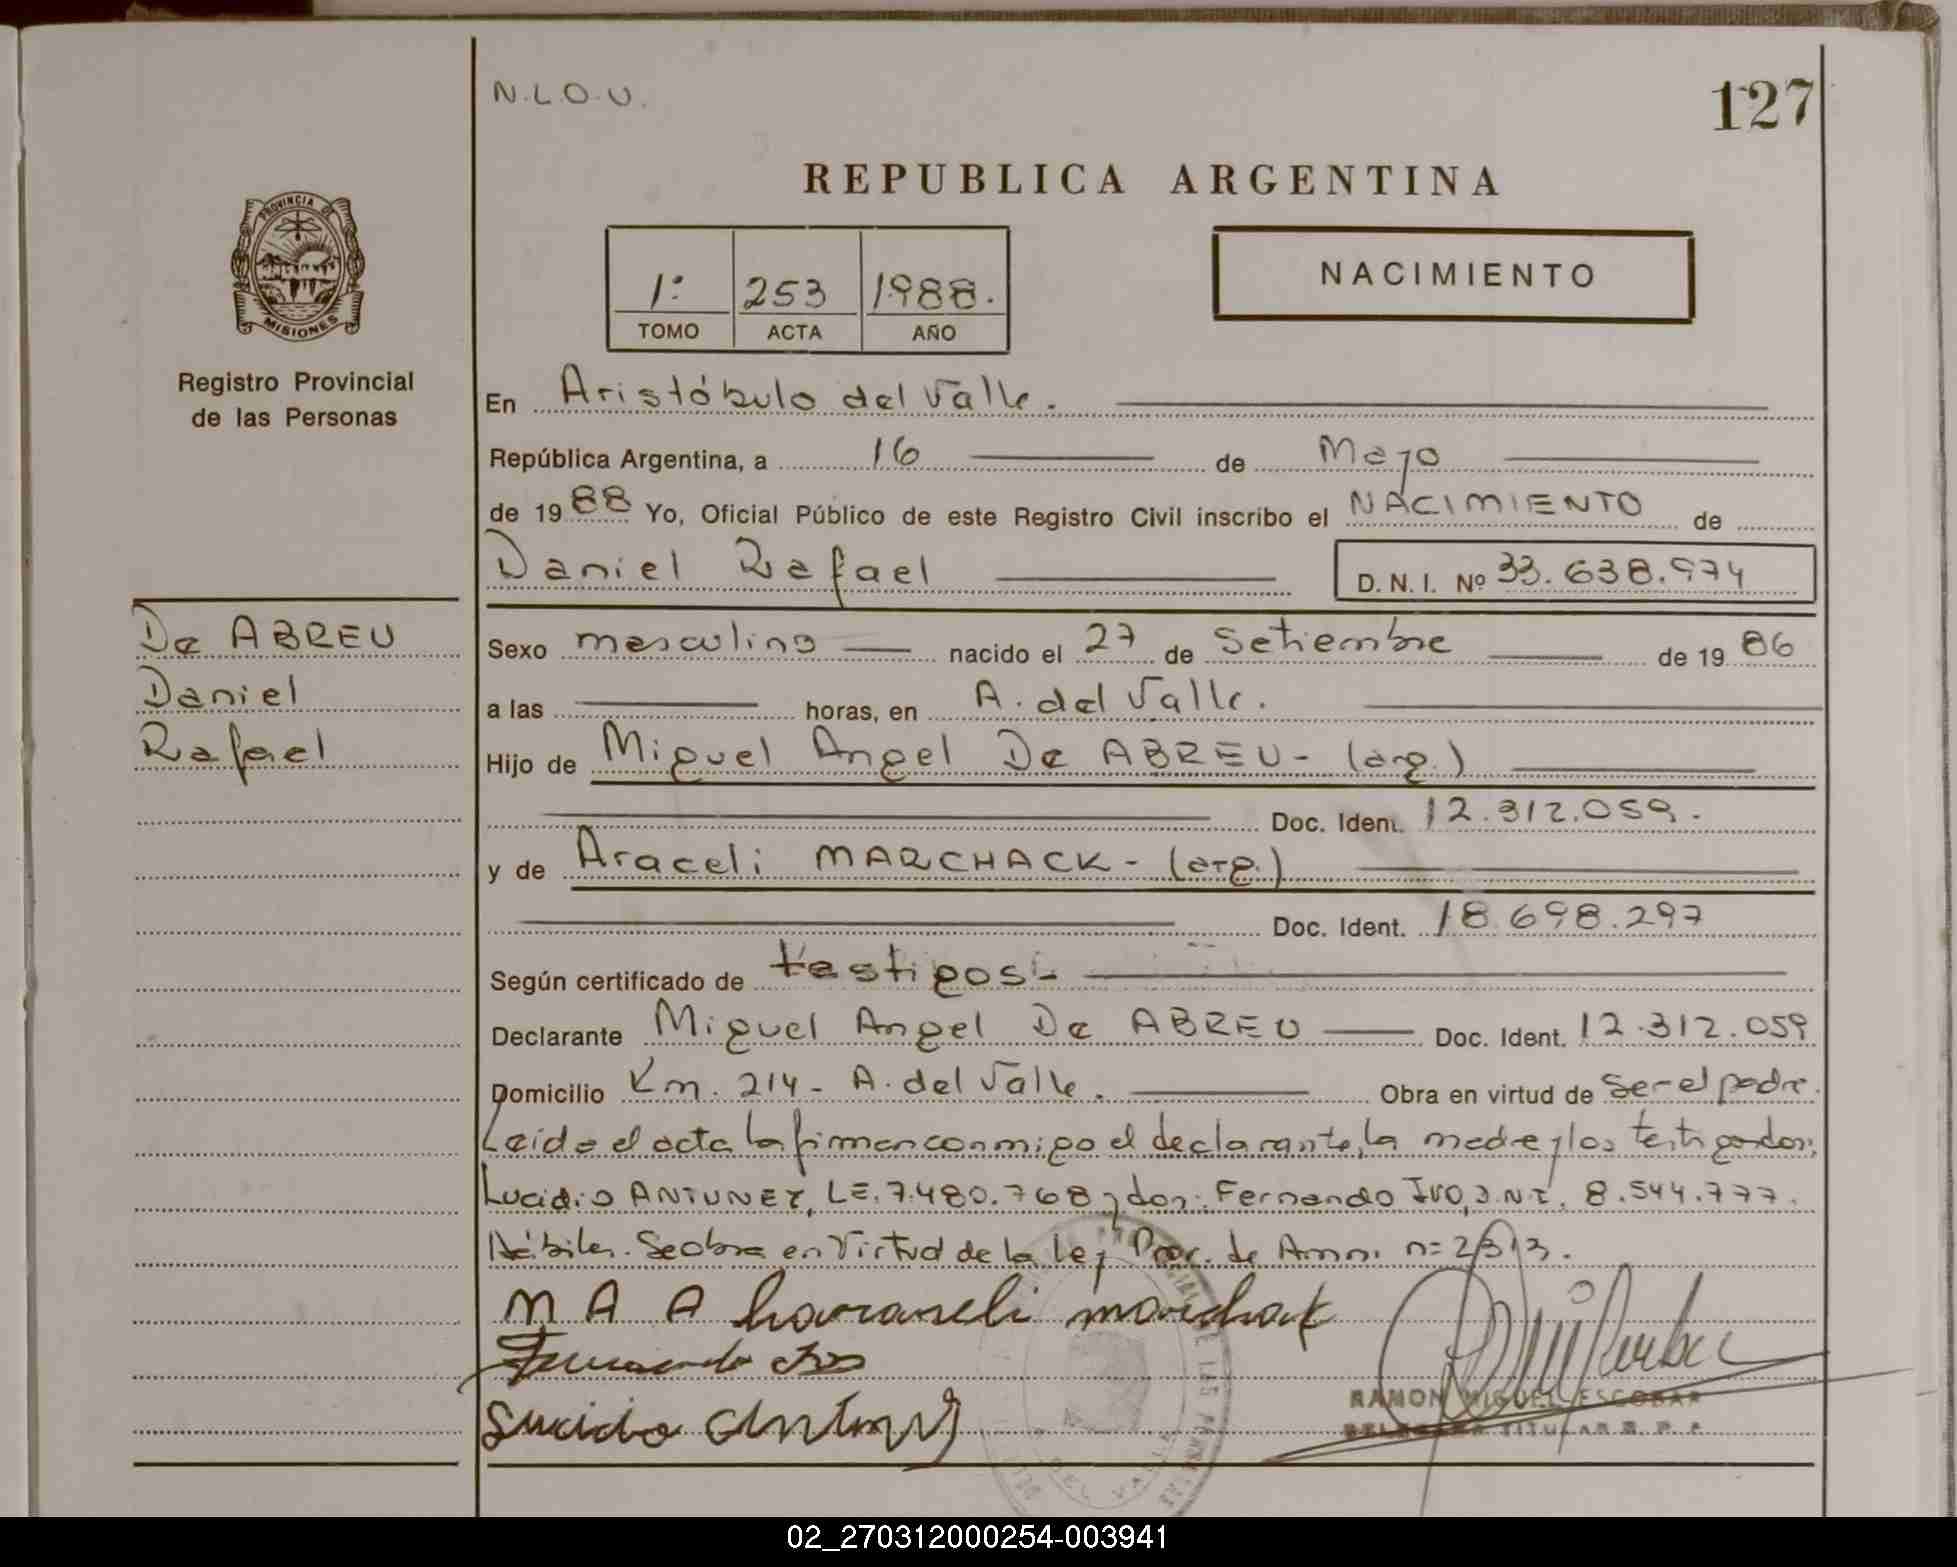 N.L.O.U.
127
REPUBLICA ARGENTINA
PROVINCIA DE
MISIONES
Registro Provincial
de las Personas
1º 253 1988.
TOMO ACTA AÑO
NACIMIENTO
En Aristóbulo del Valle.
República Argentina, a 16 de Mayo
de 1988 Yo, Oficial Público de este Registro Civil inscribo el NACIMIENTO de
Daniel Rafael D. N. I. Nº 33.638.974
De ABREU
Daniel
Rafael
Sexo masculino nacido el 27 de Setiembre de 1986
a las horas, en A. del Valle.
Hijo de Miguel Angel De ABREU - (arg.)
Doc. Ident. 12.312.059.
y de Araceli MARCHACK - (arg.)
Doc. Ident. 18.698.297
Según certificado de testigos.-
Declarante Miguel Angel De ABREU Doc. Ident. 12.312.059
Domicilio Km. 214 - A. del Valle. Obra en virtud de ser el padre.
Leida el acta la firman conmigo el declarante, la madre y los testigos don:
Lucidio ANTUNEZ, LE. 7.480.768 y don: Fernando IVO, D.N.I. 8.544.777.
Hábiles. Se obra en Virtud de la Ley Prov. de Amn. n= 2313.
M A A haraseli marchak
Fernando Ivo
Lucidio Antunez
RAMON MIGUEL ESCOBAR
DELEGADO TITULAR R. P. P.
DEL VALLE
02_270312000254-003941